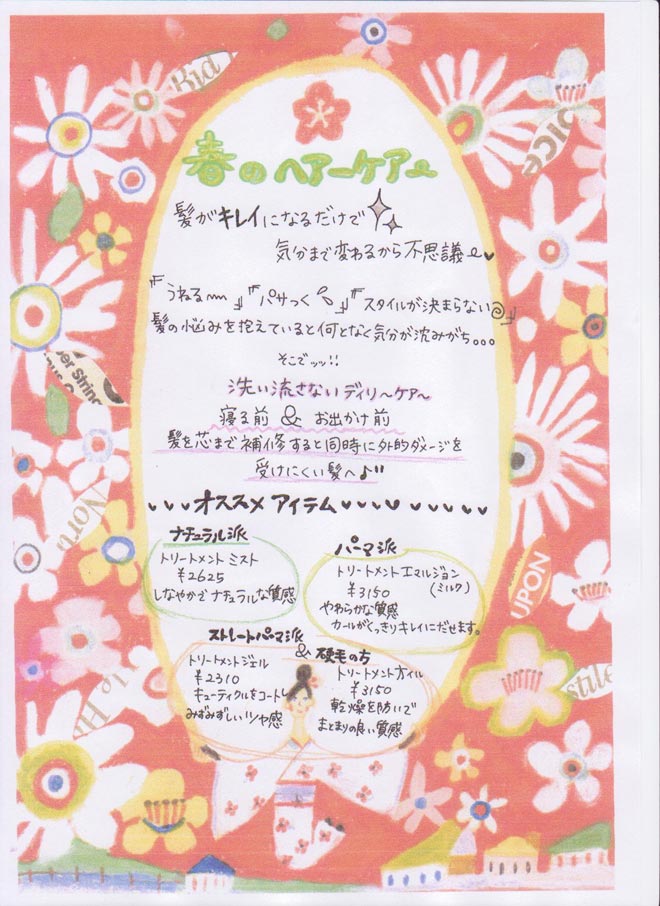 Kid
OICe
春のヘアーケア
髪がキレイになるだけで
気分まで変わるから不思議
『うねる』『パサっく』『スタイルが決まらない』
髪の悩みを抱えていると何となく気分が沈みがち...
そこでッッ!!
洗い流さないデイリ〜ケア〜
寝る前 & お出かけ前
髪を芯まで補修すると同時に外的ダメージを
受けにくい髪へ♪"
オススメ アイテム
ナチュラル派
トリートメント ミスト
¥2625
しなやかでナチュラルな質感
パーマ派
トリートメントエマルジョン
(ミルク)
¥3150
やわらかな質感
カールがくっきりキレイにだせます。
ストレートパーマ派
& 硬毛の方
トリートメントジェル
¥2310
キューティクルをコートし
みずみずしいツヤ感
トリートメントオイル
¥3150
乾燥を防いで
まとまりの良い質感
String
Noru
UPON
stile